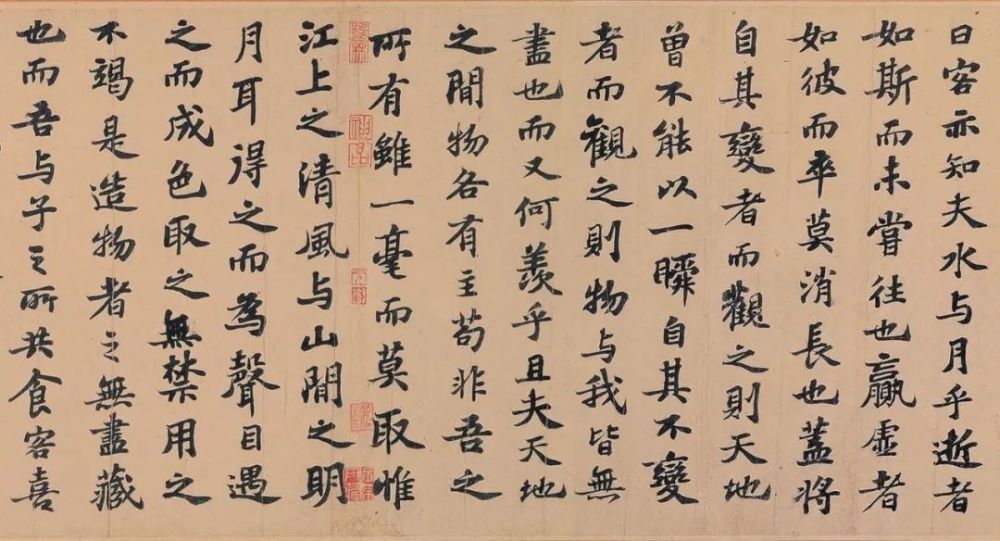 曰客亦知夫水与月乎逝者
如斯而未嘗往也贏虛者
如彼而卒莫消長也蓋將
自其變者而觀之則天地
曾不能以一瞬自其不變
者而觀之則物与我皆無
盡也而又何羨乎且夫天地
之間物各有主苟非吾之
所有雖一毫而莫取惟
江上之清風与山間之明
月耳得之而為聲目遇
之而成色取之無禁用之
不竭是造物者之無盡藏
也而吾与子之所共食客喜